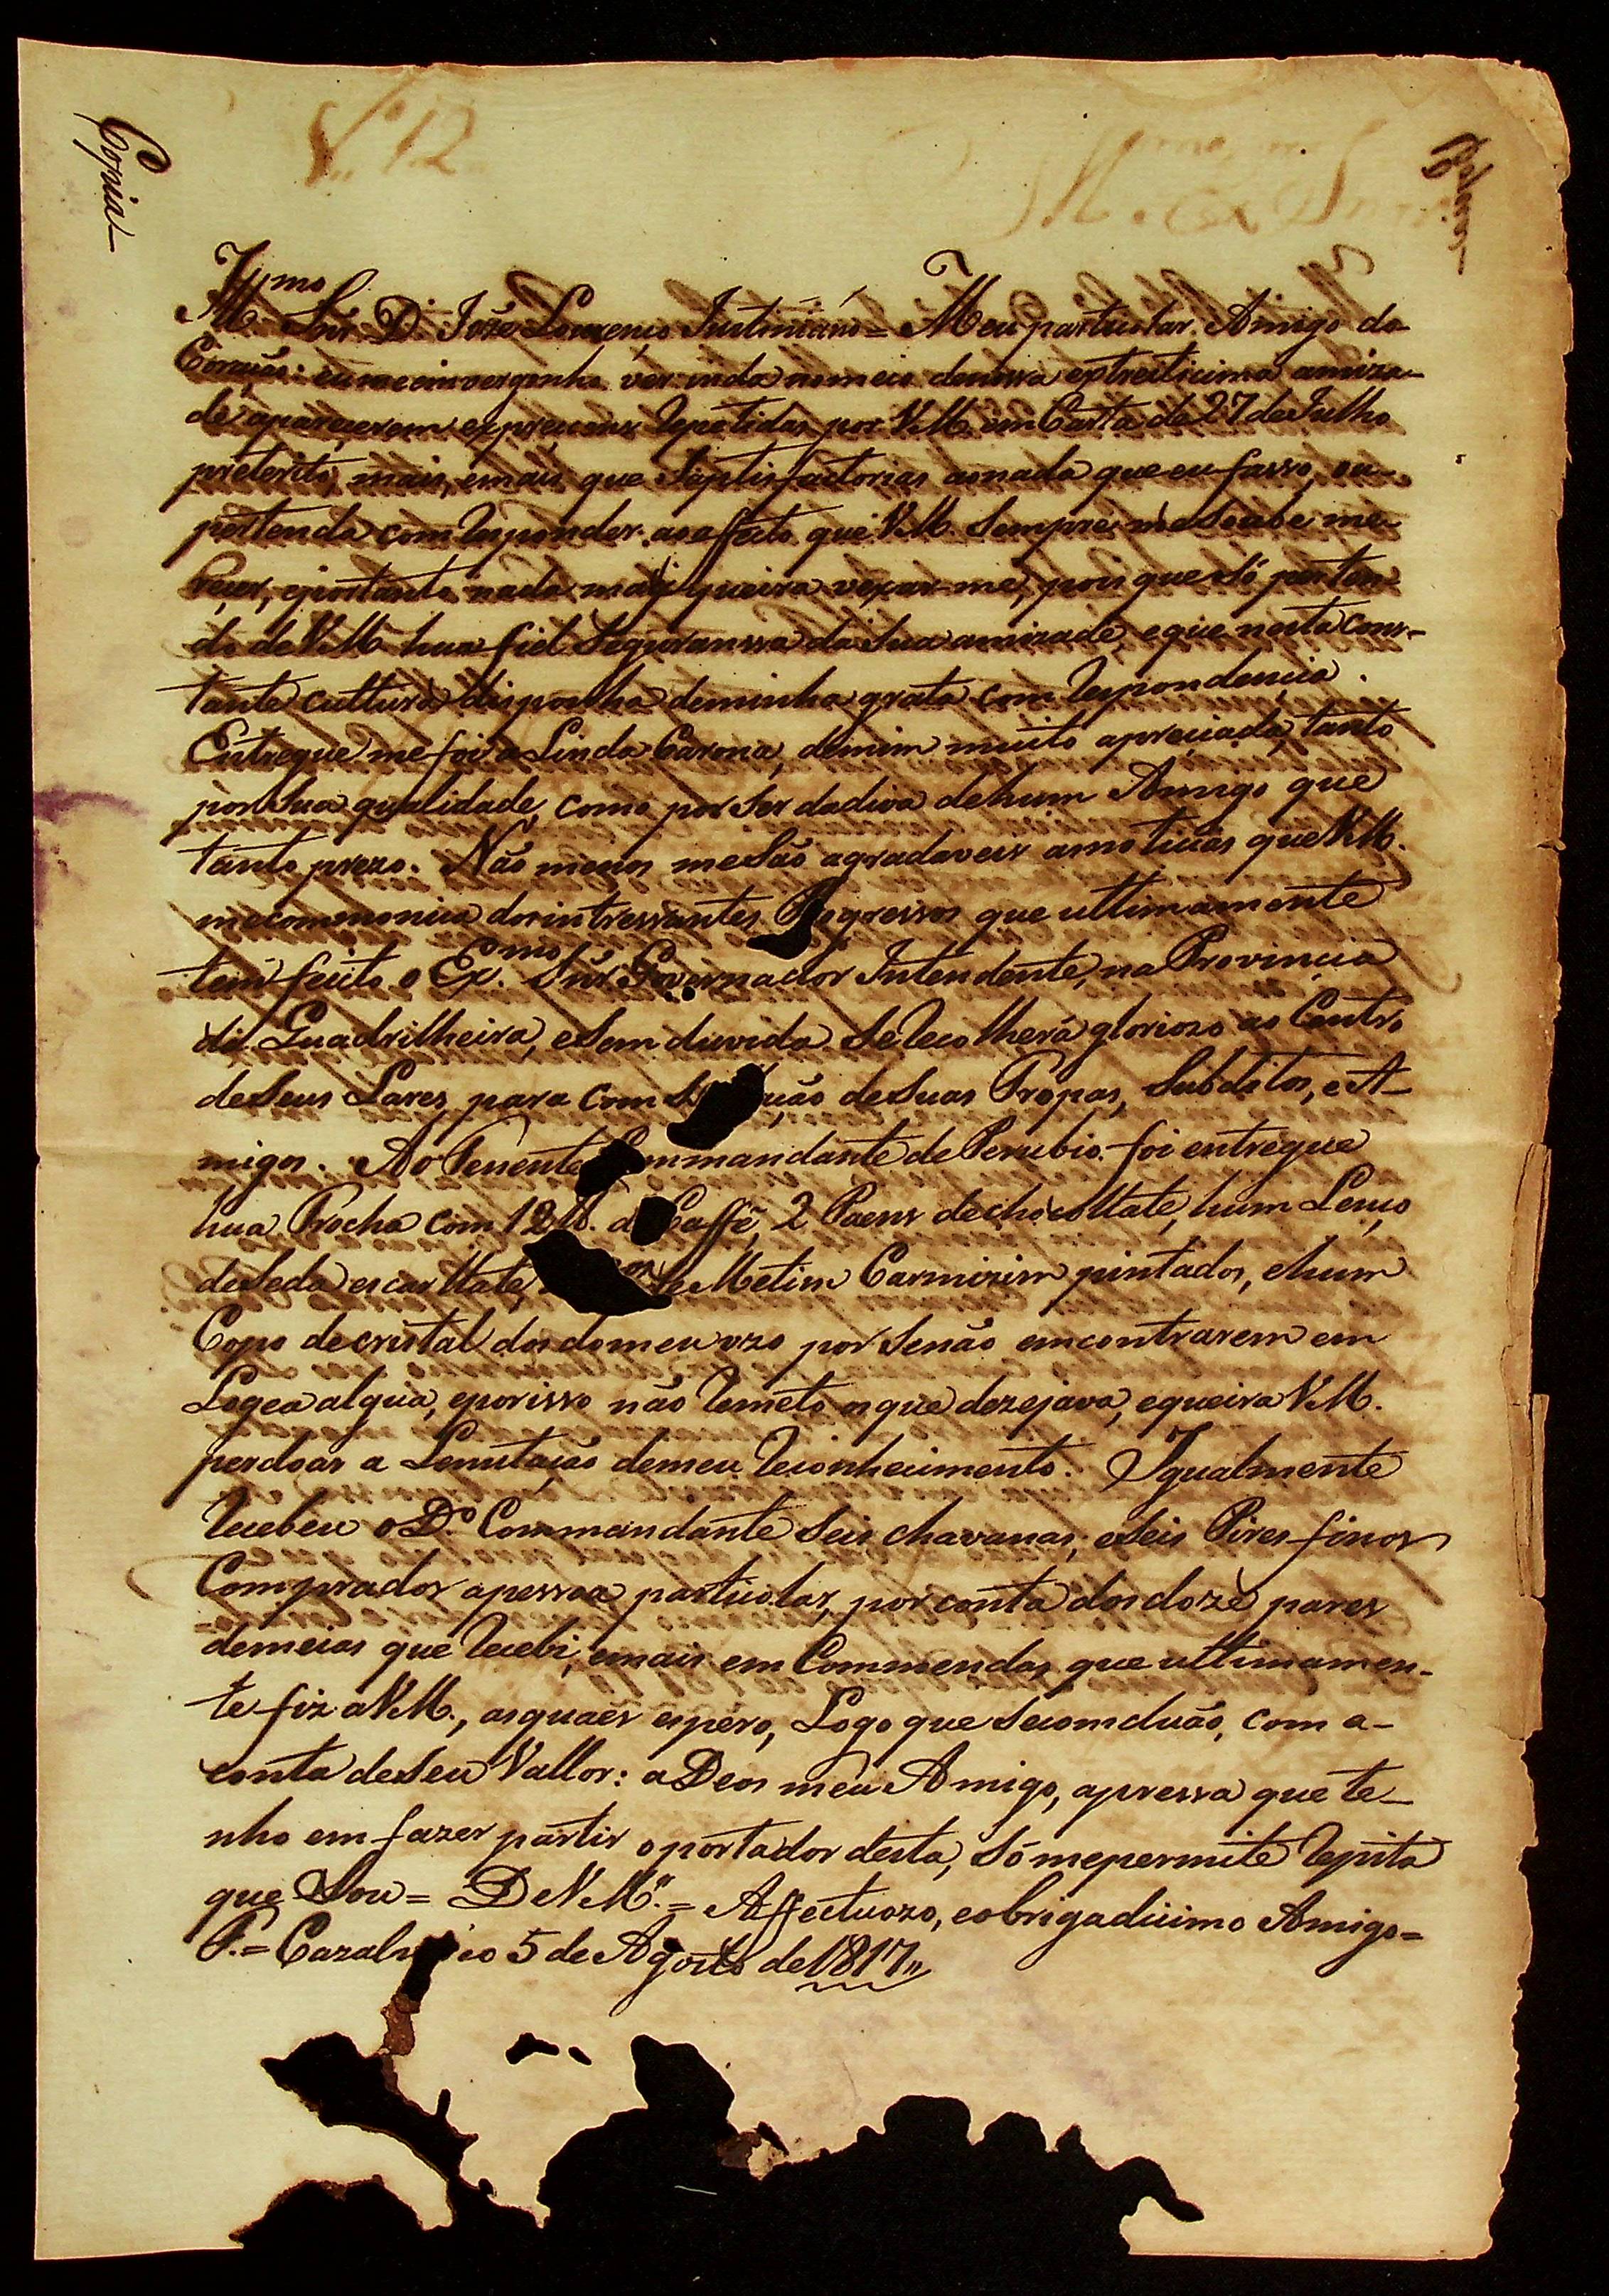 Copia
N.º 12
Ill.mo Snr. D. Joze Lourenço Justiniano = Meu particular Amigo do
Coração: eu me emvergonho ver inda nomeio denossa extreiticima amiza-
de aparecerem expreçoens repetidas por V.M. em Carta de 27 de Julho
preterito, mais, emais que saptisfactorias aonada que eu fasso, ou
pertendo com responder ao affecto que V.M. sempre me soube me-
reçer, eportanto nada mais queira vexar-me, pois que só perten-
do de V.M. hua fiel seguranssa da sua amizade, eque nesta cons-
tante cultura disponha deminha grata com respondencia.
Entregue me foi a Linda Carona, demim muito apreciada, tanto
por sua qualidade, como por ser dadiva dehum Amigo que
tanto prezo. Não menos mesão agradaveis asnoticias que V.M.
mecommonica dosintressantes Progressos que ultimamente
tem feito o Ex.mo Snr. Governador Intendente, na Provincia
de Guadrilheira, esem duvida se recolherá gloriozo ao Centro
deseus Lares, para com ução desuas Tropas, Subditos, eA-
migos. Ao Tenente Commandante de Serubio foi entregue
hua Trocha com 12 lb. de Caffé, 2 Paens dechocollate, hum Lenço
deseda escarllate, de Metim Carmizim pintados, ehum
Copo decristal dosdomeu uzo por senão emcontrarem em
Logea algua, eporisso não remeto osque dezejava, equeira V.M.
perdoar a Lemitação demeu reconhecimento. Igualmente
recebeu o D.º Commandante seis chavanas, eseis Pires finos
Comprados apessoa particolar, por conta dosdoze pares
demeias que recebi, emais em Commendas que ultimamen-
te fiz aV.M., asquaes espero, Logo que secomcluão, com a-
conta deseu Vallor: a Deos meu Amigo, apressa que te-
nho em fazer partir oportador desta, só mepermite repita
que sou = De V.M.ce = Affectuozo, eobrigadicimo Amigo =
F. = Cazal 5 de Agosto de 1817